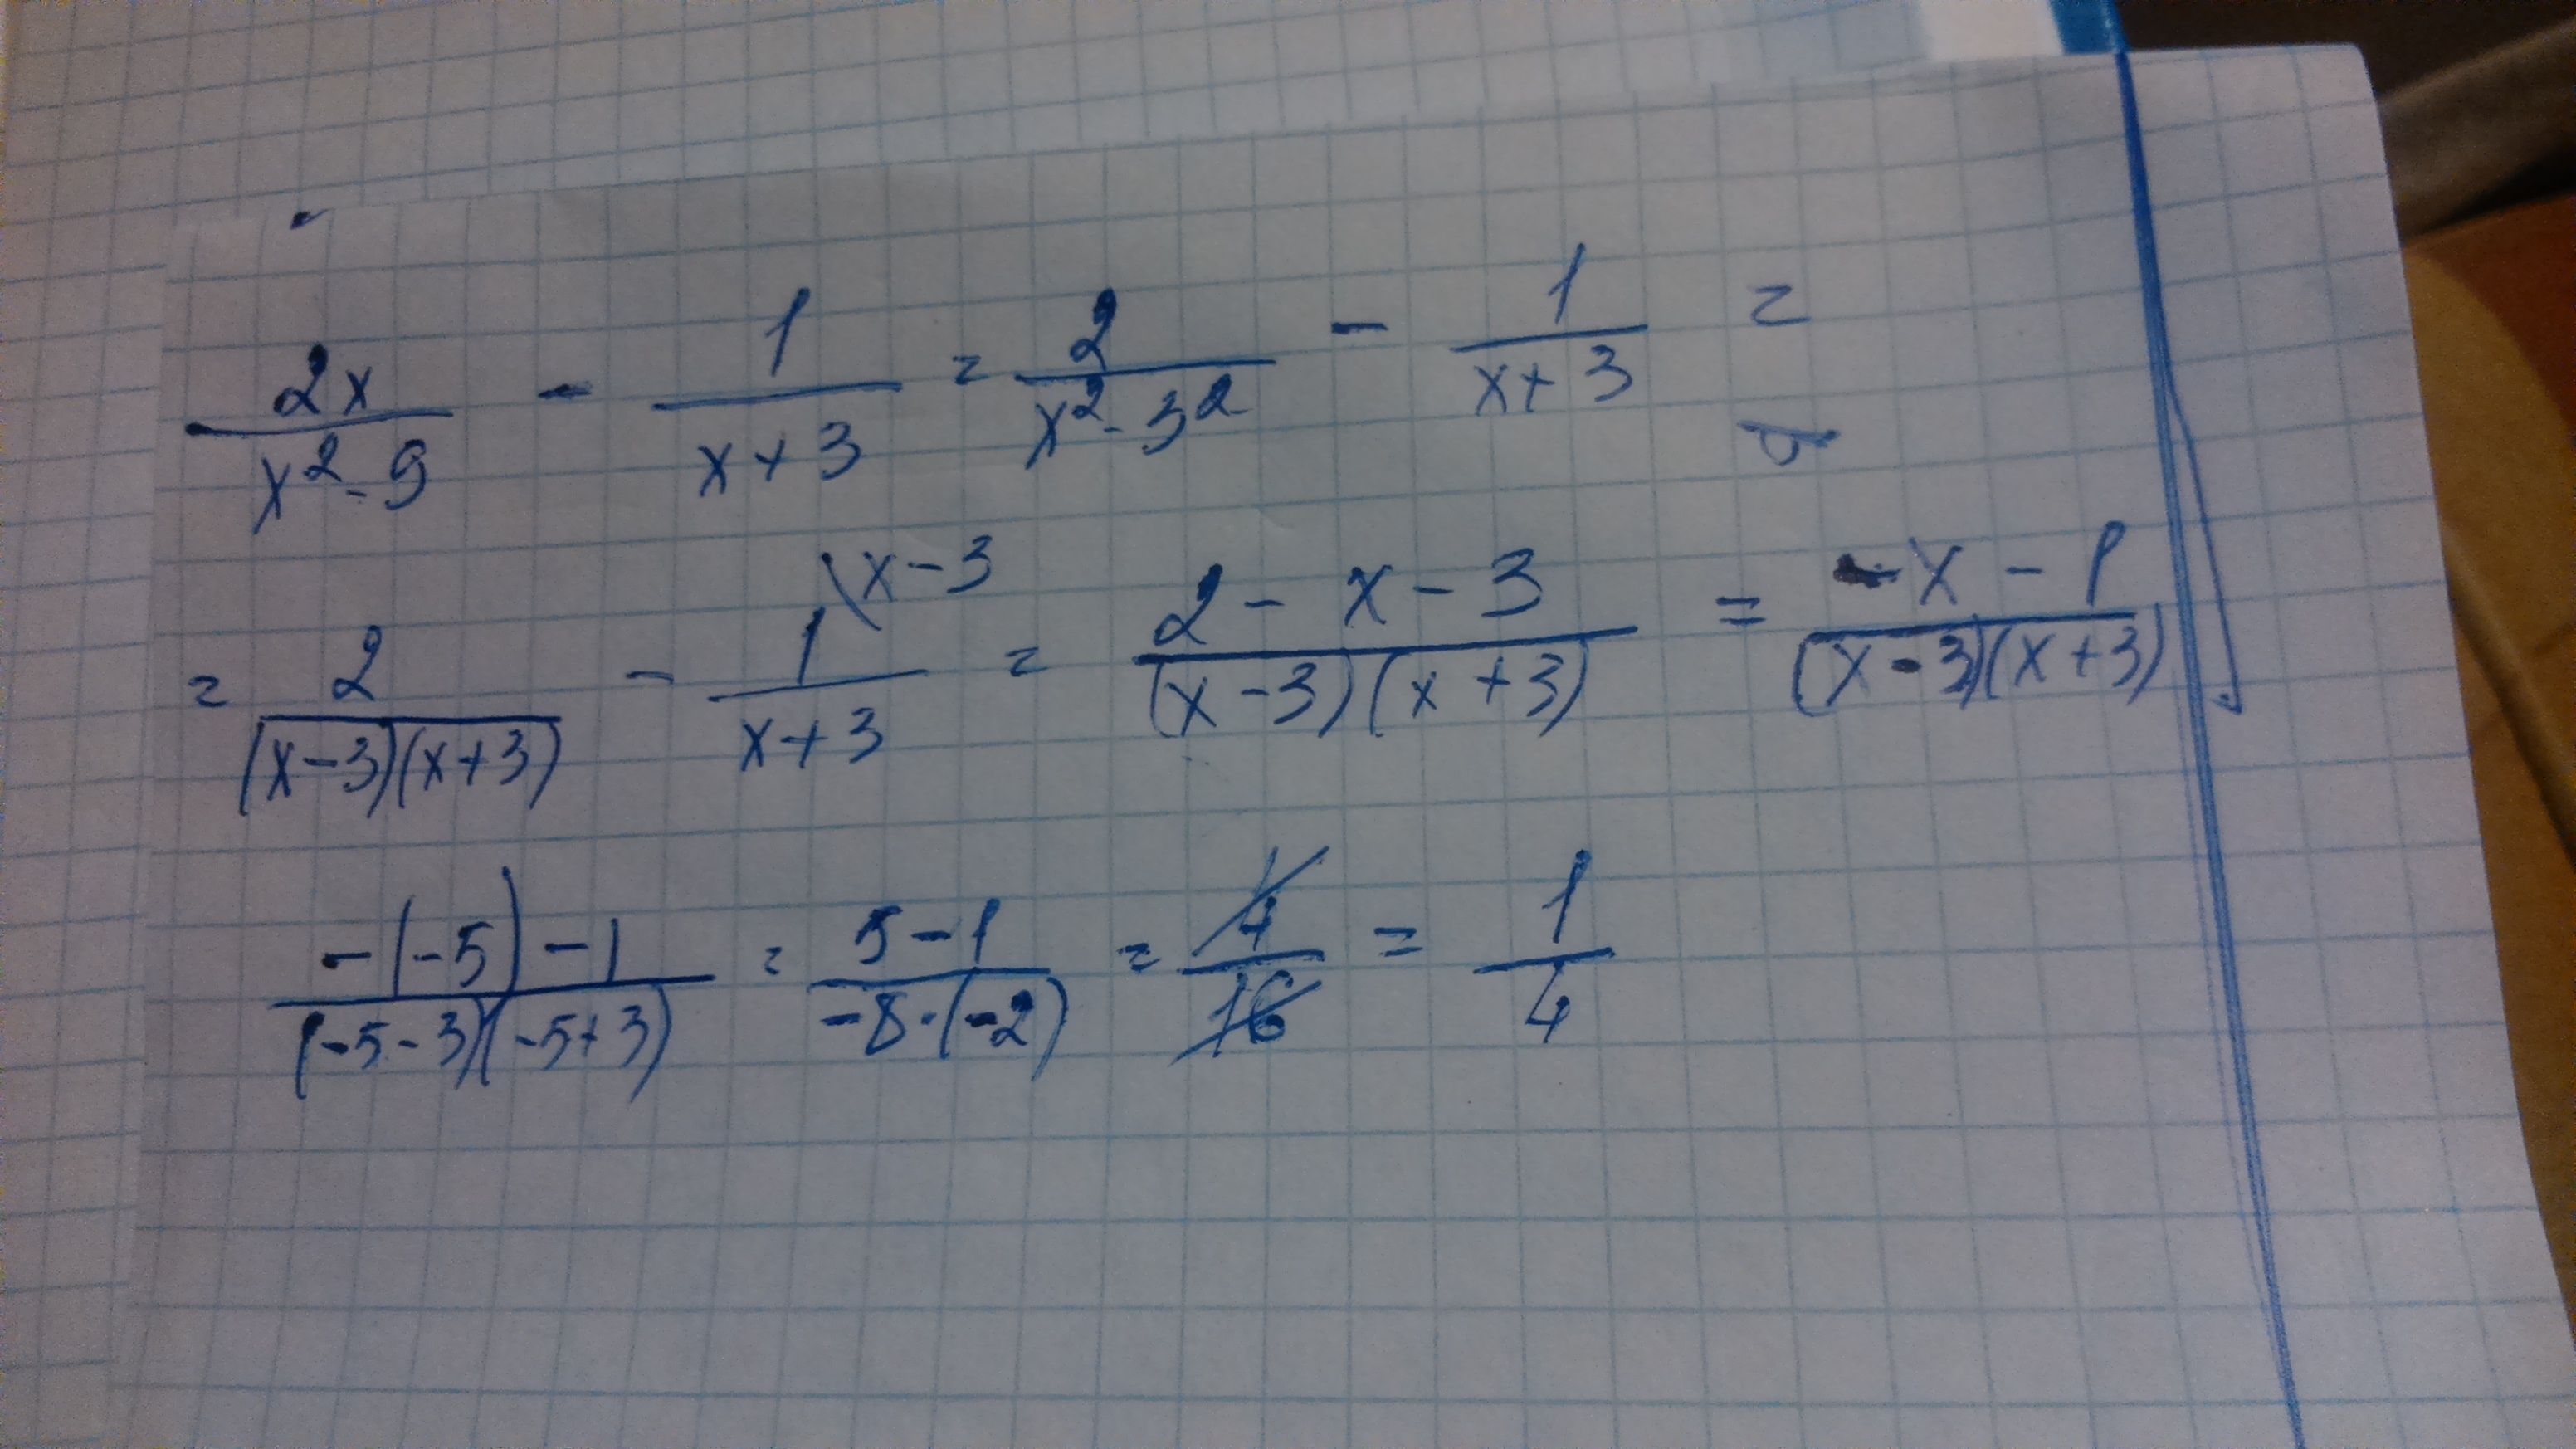 2x/(x²-9) - 1/(x+3) = 2/(x²-3²) - 1/(x+3) =
= 2/((x-3)(x+3)) - 1\x-3/(x+3) = (2-x-3)/((x-3)(x+3)) = (-x-1)/((x-3)(x+3))
(-(-5)-1)/((-5-3)(-5+3)) = (5-1)/(-8·(-2)) = 4/16 = 1/4